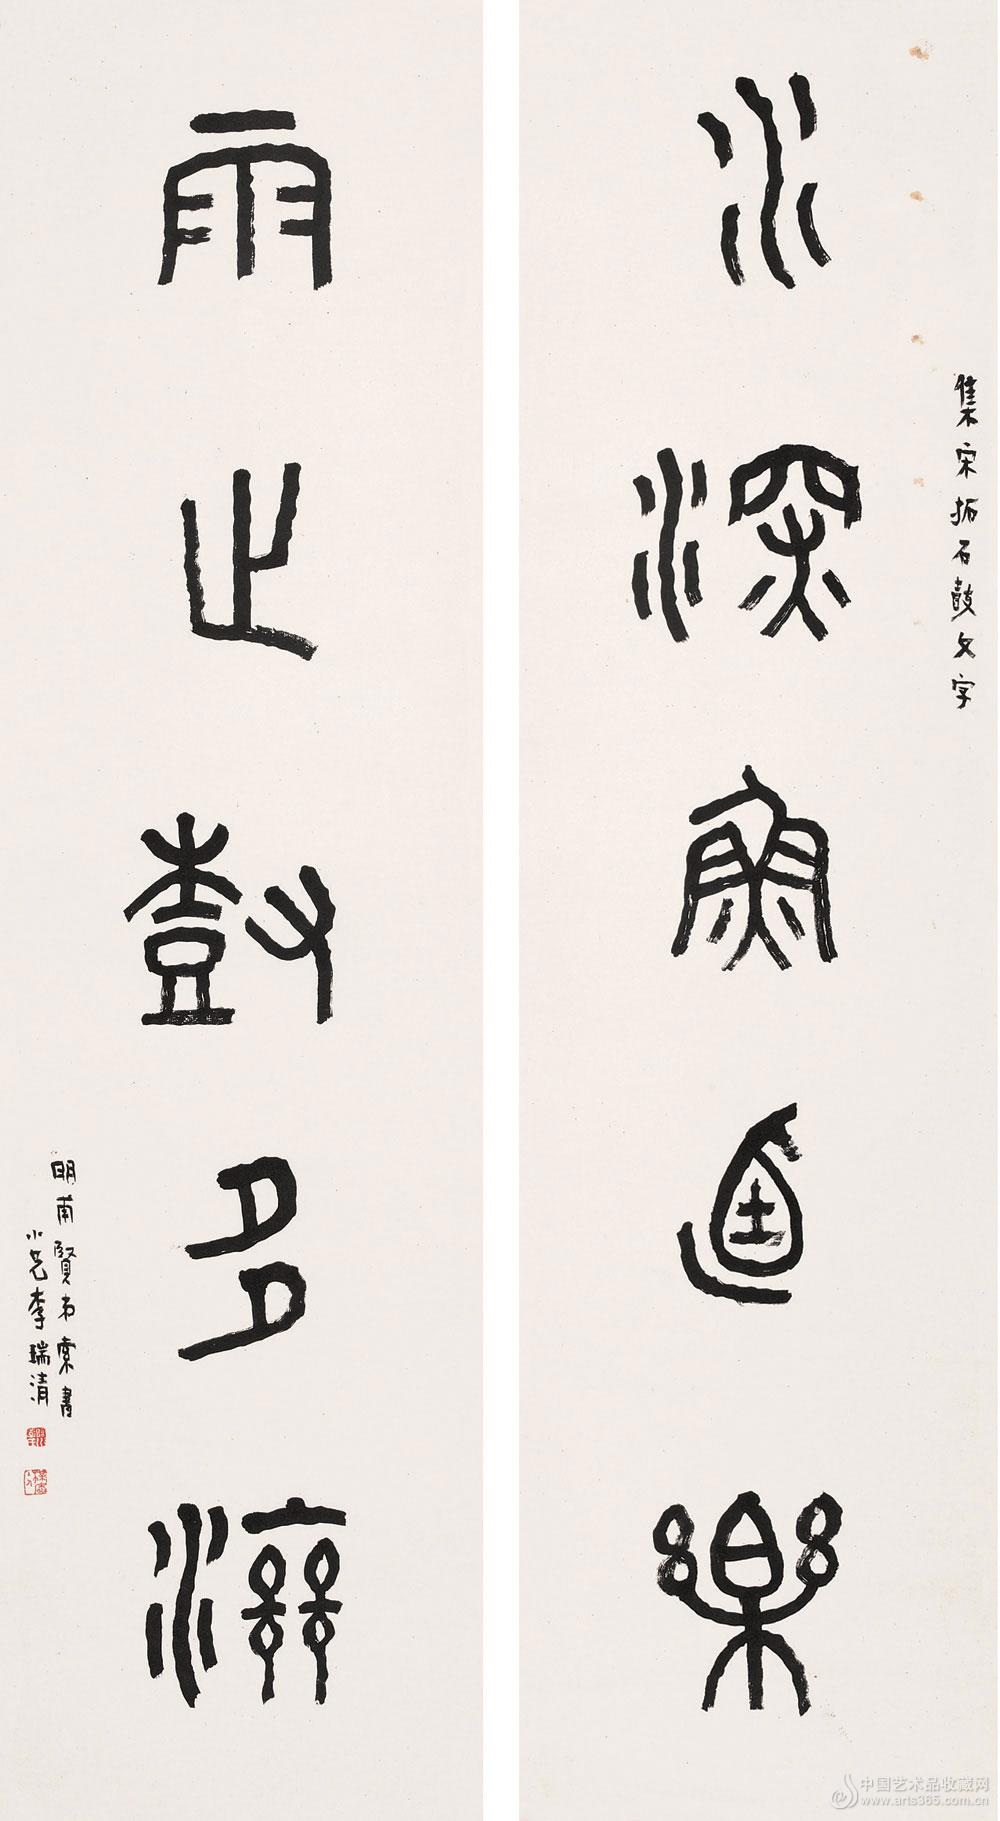 集宋拓石鼓文字
水深魚逌樂
雨止尌多滋
明甫賢弟索書
小兄李瑞清
中国艺术品收藏网
www.arts365.com.cn